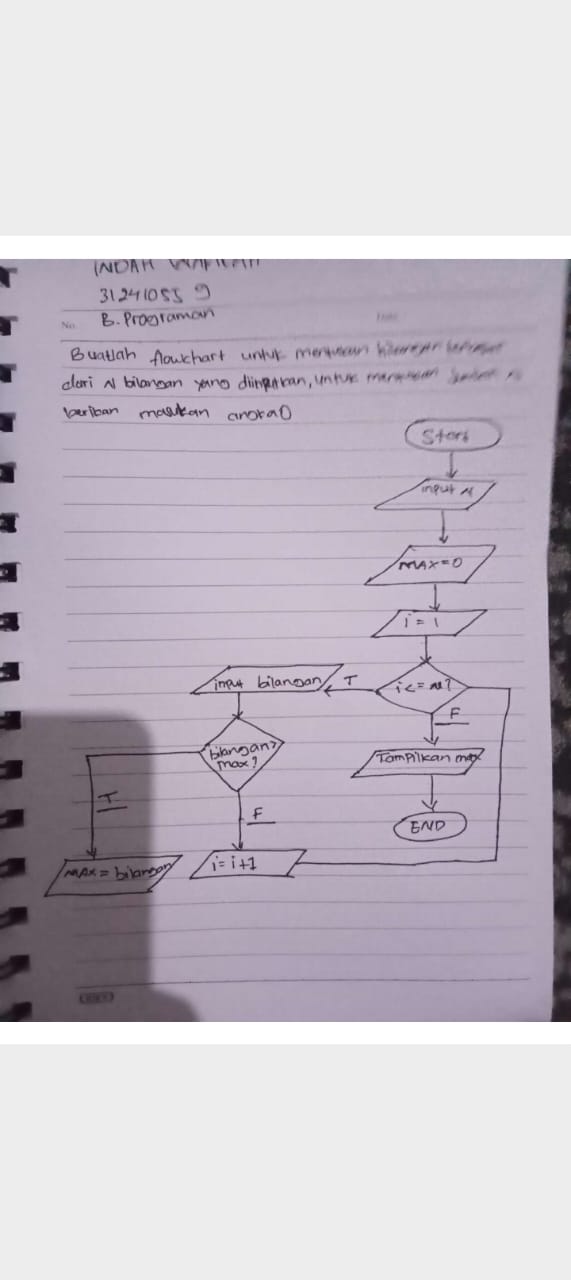 INDAH
312410559
No.
B. Programan
Buatlah flowchart untuk
dari N bilangan yang diinputkan, untuk
beriban masukan angka 0
Start
input N
MAX=0
i = 1
i <= N?
T
input bilangan
F
bilangan>
max?
Tampilkan max
T
F
END
MAX = bilangan
i = i+1